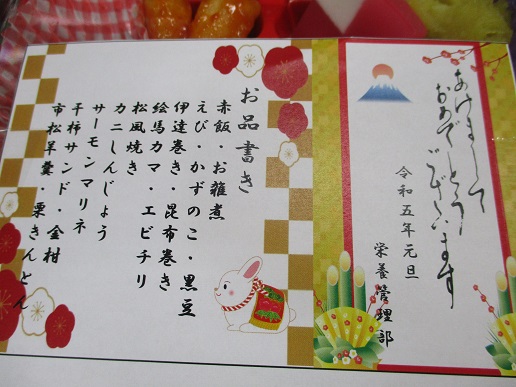 あけまして
おめでとう
ございます
令和五年元旦
栄養管理部
お品書き
赤飯・お雑煮
えび・かずのこ・黒豆
伊達巻き・昆布巻き
絵馬カマ・エビチリ
松風焼き
カニしんじょう
サーモンマリネ
干柿サンド・金柑
市松羊羹・栗きんとん